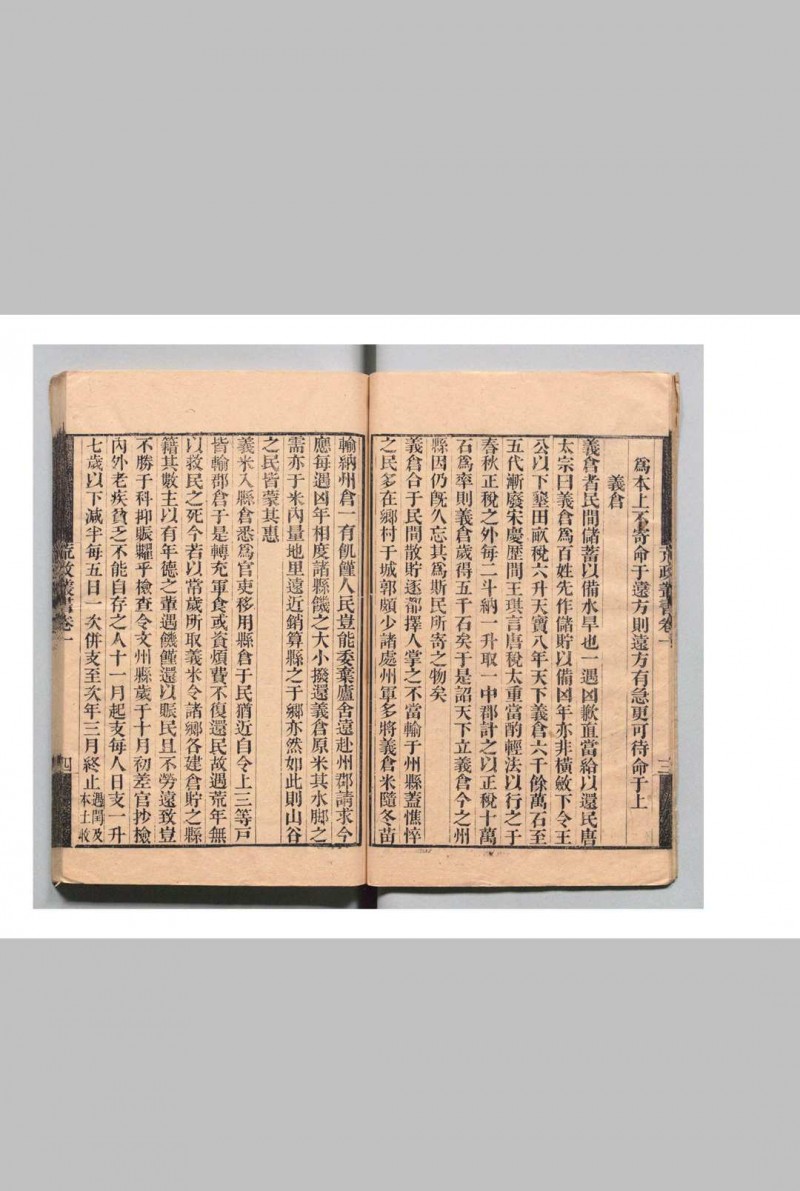 為本上不寄命于遠方則遠方有急更可待命于上
義倉
義倉者民間儲蓄以備水旱也一遇凶歉直當給以還民唐
太宗曰義倉爲百姓先作儲貯以備凶年亦非橫斂下令王
公以下墾田畝稅六升天寶八年天下義倉六千餘萬石至
五代漸廢宋慶歷間王琪言唐稅太重當酌輕法以行之于
春秋正稅之外每二斗納一升取一中郡計之以正稅十萬
石爲率則義倉歲得五千石矣于是詔天下立義倉今之州
縣因仍旣久忘其爲斯民所寄之物矣
義倉合于民間散貯逐都擇人掌之不當輸于州縣蓋憔悴
之民多在鄉村于城郭頗少諸處州軍多將義倉米隨冬苗
荒政叢書卷一
三
輸納州倉一有飢饉人民豈能委棄廬舍遠赴州郡請求今
應每遇凶年相度諸縣饑之大小撥還義倉原米其水脚之
需亦于米內量地里遠近銷算縣之于鄉亦然如此則山谷
之民皆蒙其惠
義米入縣倉悉爲官吏移用縣倉于民猶近自令上三等戸
皆輸郡倉于是轉充軍食或資煩費不復還民故遇荒年無
以救民之死今若以常歲所取義米令諸鄉各建倉貯之縣
籍其數主以有年德之輩遇饑饉還以賑民且不勞遠致豈
不勝于科抑賑糶乎檢查令文州縣歲于十月初差官抄撿
內外老疾貧乏不能自存之人十一月起支每人日支一升
七歲以下減半每五日一次併支至次年三月終止遇閏及本土收
荒政叢書卷一
四